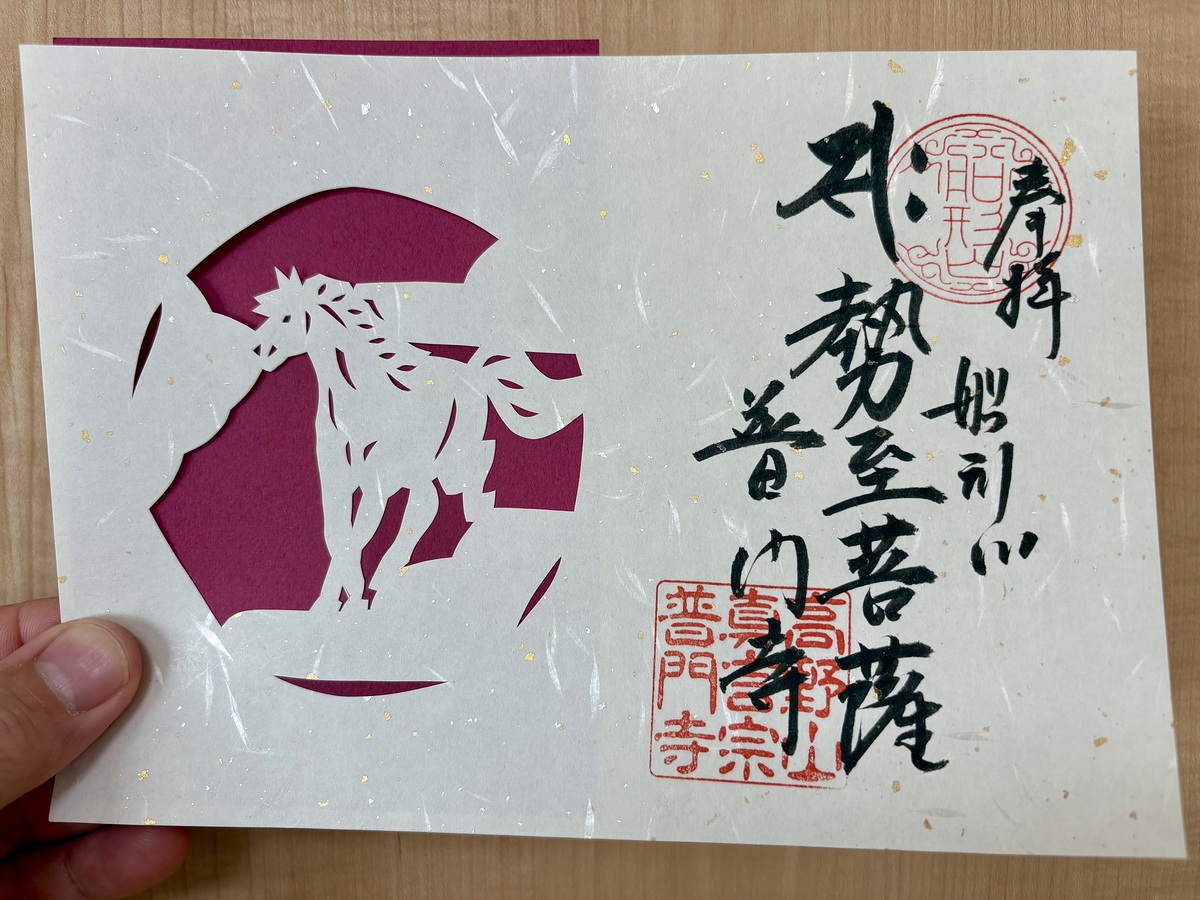 奉拝
船形山
船形山
सः
勢至菩薩
普門寺
高野山
真言宗
普門寺